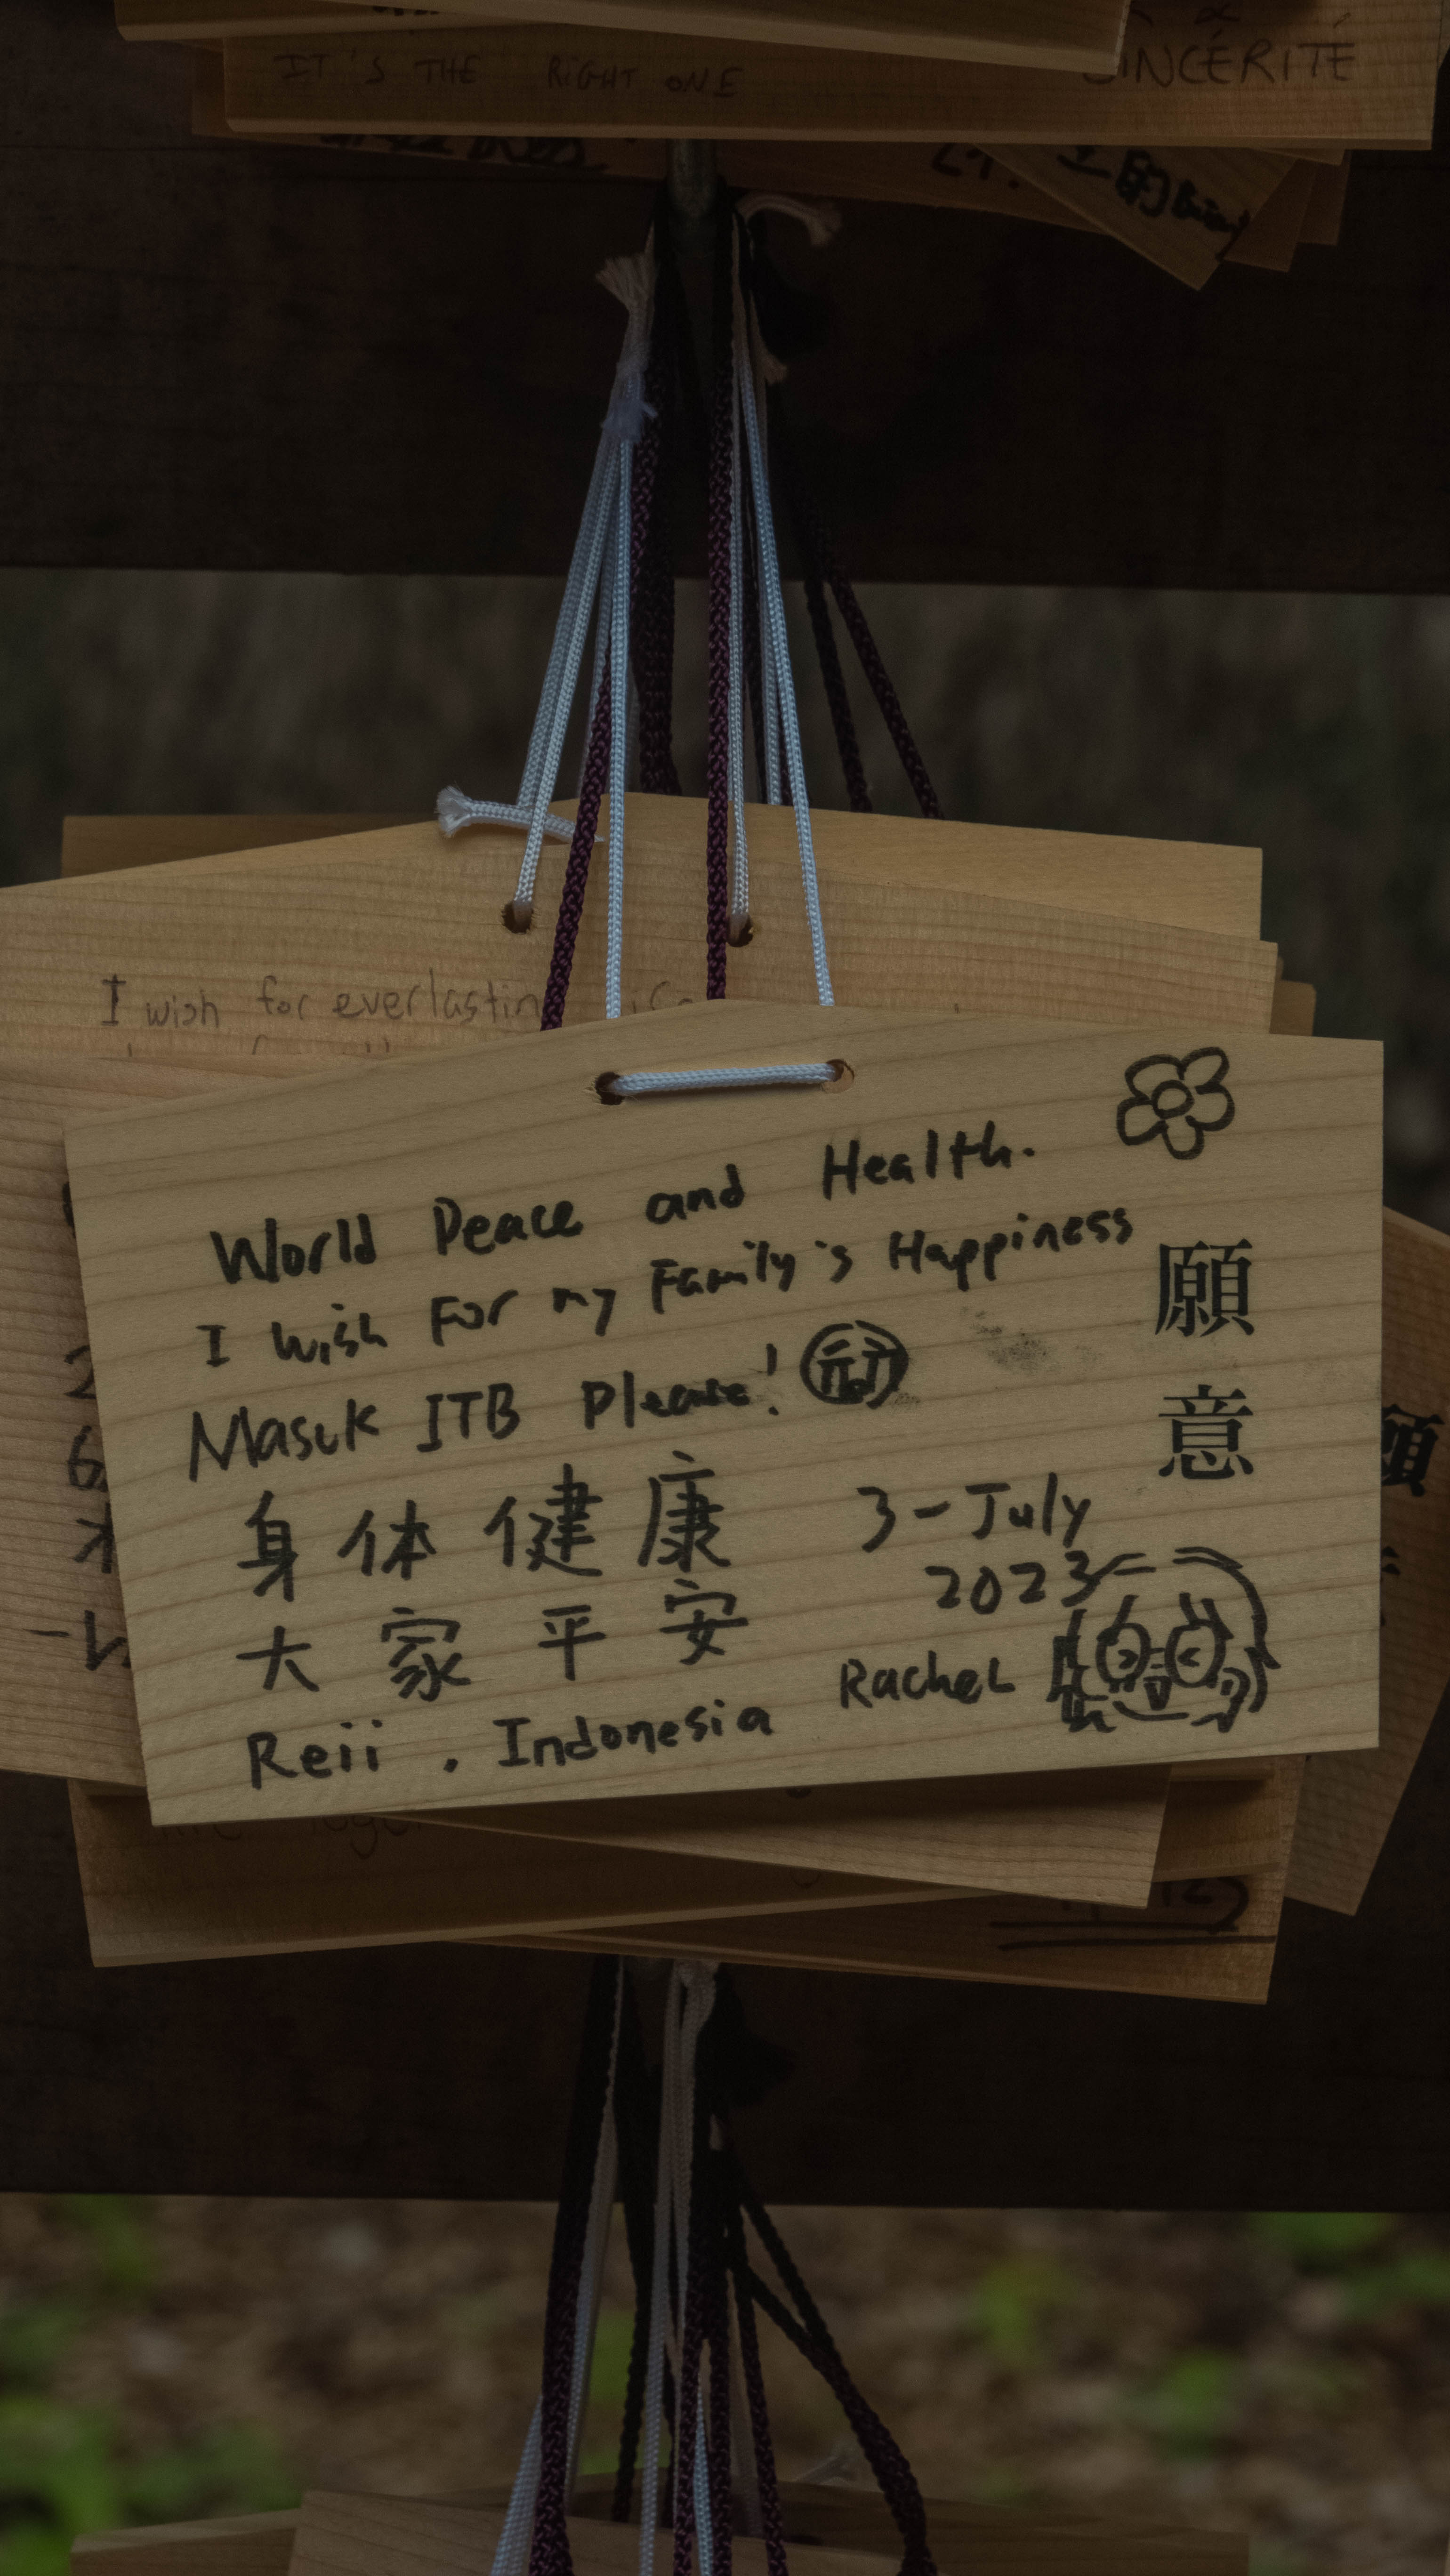 IT'S THE RIGHT ONE
SINCÉRITÉ
I wish for everlastin
World Peace and Health.
I wish For my Family's Happiness
Masuk ITB Please!
身体健康
大家平安
Reii, Indonesia
願意
3-July
2023
Rachel